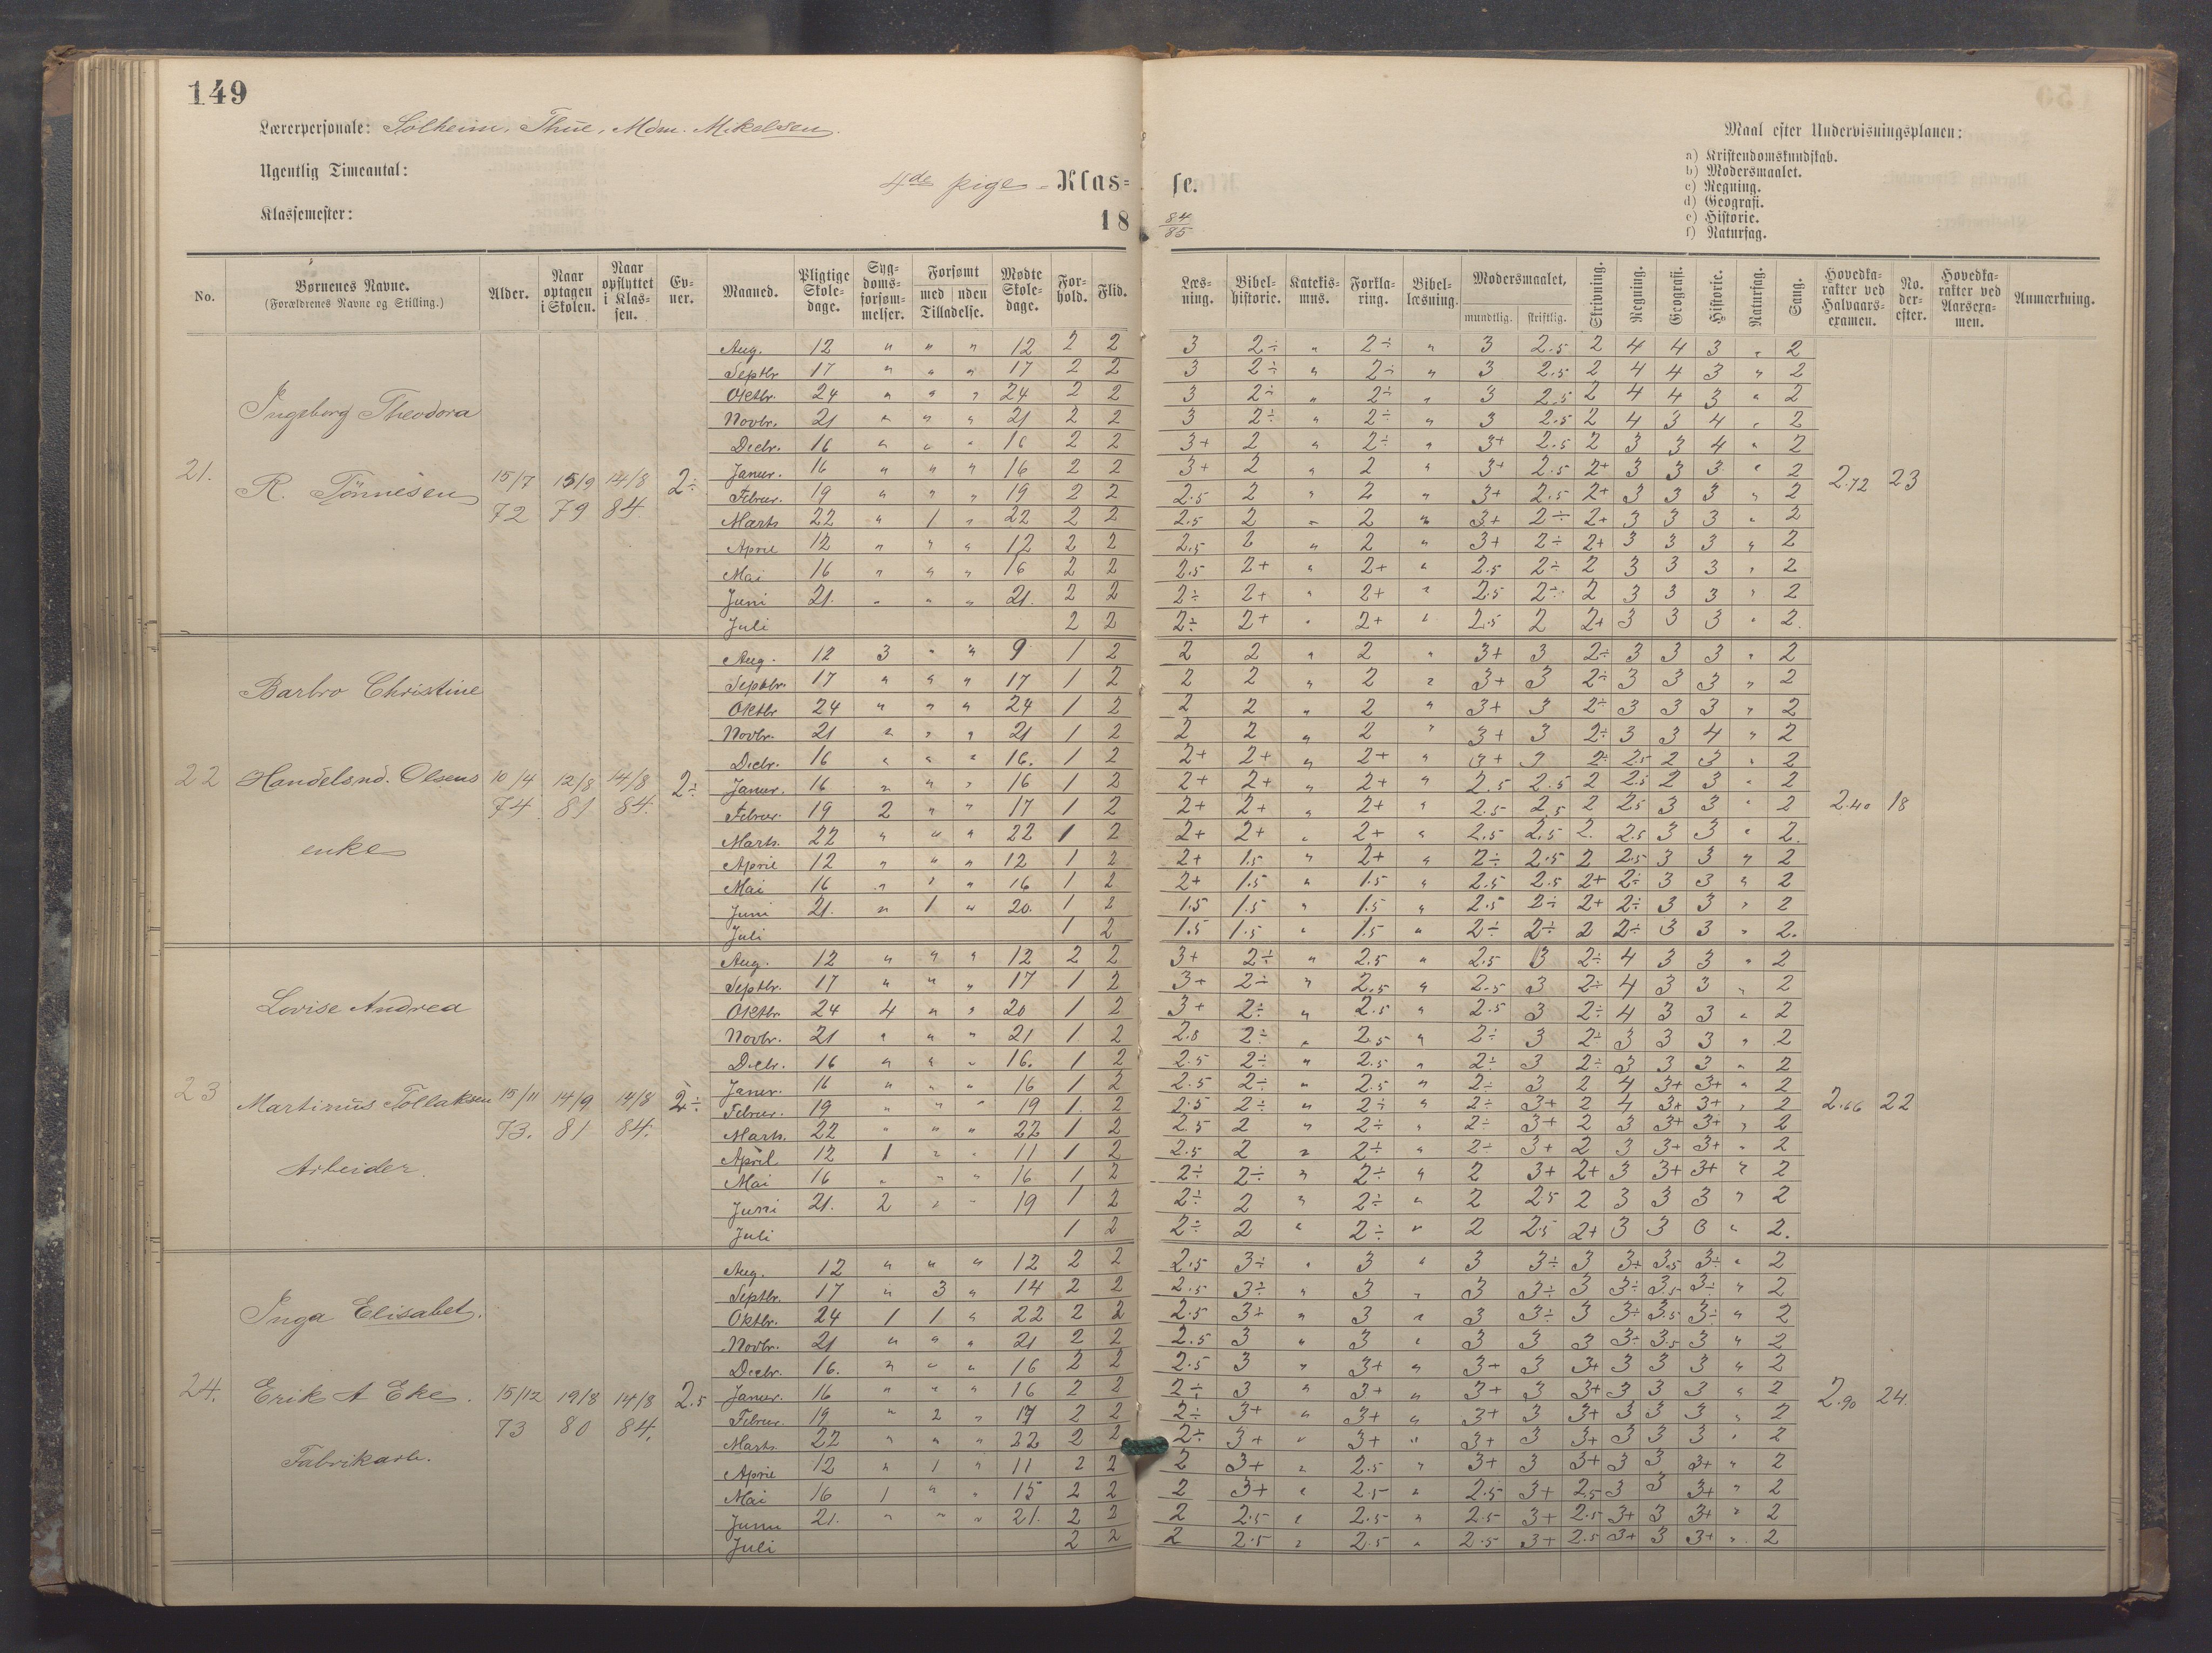 149
Lærerpersonale: Solheim, Thue, Mdm. Mikelsen.
Ugentlig Timeantal:
Klassemester:
4de pige - Klas=
18
se.
84/85
Maal efter Undervisningsplanen:
a) Kristendomskundskab.
b) Modersmaalet.
c) Regning.
d) Geografi.
e) Historie.
f) Naturfag.
No. | Børnenes Navne. (Forældrenes Navne og Stilling.) | Alder. | Naar optagen i Skolen. | Naar opflyttet i Klassen. | Evner. | Maaned. | Pligtige Skoledage. | Sygdomsforsømmelser. | Forsømt med Tilladelse. | Forsømt uden Tilladelse. | Mødte Skoledage. | Forhold. | Flid. | Læsning. | Bibelhistorie. | Katekismus. | Forklaring. | Bibellæsning. | Modersmaalet, mundtlig. | skriftlig. | Skrivning. | Regning. | Geografi. | Historie. | Naturfag. | Sang. | Hovedkarakter ved Halvaarsexamen. | No. derefter. | Hovedkarakter ved Aarsexamen. | Anmærkning.
21. Ingeborg Theodora R. Tönnesen 15/7 72 15/9 79 14/8 84. 2÷ 2.72 23
Aug. 12 " " " 12 2 2 3 2÷ " 2÷ " 3 2.5 2 4 4 3 " 2
Septbr 17 " " " 17 2 2 3 2÷ " 2÷ " 3 2.5 2 4 4 3 " 2
Oktbr. 24 " " " 24 2 2 3 2÷ " 2÷ " 3 2.5 2 4 4 3 " 2
Novbr. 21 " " " 21 2 2 3 2÷ " 2÷ " 3 2.5 2 4 3 4 " 2
Decbr. 16 " " " 16 2 2 3+ 2 " 2÷ " 3+ 2.5 2 3 3 4 " 2
Januar. 16 " " " 16 2 2 3+ 2 " 2 " 3+ 2.5 2+ 3 3 3 " 2
Februar. 19 " " " 19 2 2 2.5 2 " 2 " 3+ 2.5 2+ 3 3 3 " 2
Marts 22 " 1 " 22 2 2 2.5 2 " 2 " 3+ 2÷ 2+ 3 3 3 " 2
April 12 " " " 12 2 2 2.5 2 " 2 " 3+ 2÷ 2+ 3 3 3 " 2
Mai 16 " " " 16 2 2 2.5 2+ " 2+ " 2.5 2÷ 2 3 3 3 " 2
Juni 21. " " " 21. 2 2 2÷ 2+ " 2+ " 2.5 2÷ 2 3 3 3 " 2
Juli 2 2 2÷ 2+ " 2+ " 2.5 2 2+ 3 3 3 " 2.
22 Barbro Christine Handelsnd. Olsens enke 10/4 74 12/8 81 14/8 84. 2÷ 2.40 18
Aug. 12 3 " " 9 1 2 2 2 " 2 " 3+ 3 2÷ 3 3 3 " 2
Septbr. 17 " " " 17 1 2 2 2 " 2 " 3+ 3 2÷ 3 3 3 " 2
Oktbr 24 " " " 24 1 2 2 2 " 2 " 3+ 3 2÷ 3 3 3 " 2
Novbr. 21 " " " 21 1 2 2 2 " 2 " 3+ 3 2÷ 3 3 4 " 2
Decbr. 16 " " " 16. 1 2 2+ 2+ " 2+ " 3+ 3 2÷ 2.5 2 3 " 2
Januar. 16 " " " 16 1 2 2+ 2+ " 2+ " 2.5 2.5 2 2.5 2 3 " 2
Februar. 19 2 " " 17 1 2 2+ 2+ " 2+ " 2.5 2.5 2 2.5 3 3 " 2
Marts. 22 " " " 22 1 2 2+ 2+ " 2+ " 2.5 2.5 2. 2.5 3 3 " 2.
April 12 " " " 12 1 2 2+ 1.5 " 2+ " 2÷ 2.5 2 2.5 3 3 " 2
Mai 16 " " " 16 1 2 2+ 1.5 " 1.5 " 2.5 2.5 2+ 2÷ 3 3 " 2
Juni 21. " 1 " 20. 1 2 1.5 1.5 " 1.5 " 2.5 2÷ 2+ 2÷ 3 3 " 2
Juli 1 2 1.5 1.5 " 1.5 " 2÷ 2÷ 2 2÷ 3 3 " 2.
23 Lovise Andrea Martinus Tollaksen Arbeider. 15/11 73. 14/9 81 14/8 84. 2÷ 2.66 22
Aug. 12 " " " 12 2 2 3+ 2÷ " 2.5 " 2.5 3 2÷ 4 3 3 " 2
Septbr. 17 " " " 17 1 2 3+ 2÷ " 2.5 " 2.5 3 2÷ 4 3 3 " 2
Oktbr 24 4 " " 20 1 2 3+ 2÷ " 2.5 " 2.5 3 2÷ 4 3 3 " 2
Novbr. 21 " " " 21 1 2 2.5 2÷ " 2.5 " 2÷ 3 2÷ 3 3 3 " 2
Decbr. 16 " " " 16. 1 2 2.5 2÷ " 2.5 " 2÷ 3 2÷ 3 3 3 " 2
Januar. 16 " " " 16 1 2 2.5 2÷ " 2.5 " 2÷ 3 2 4 3+ 3+ " 2
Februar. 19 " " " 19 1. 2 2.5 2÷ " 2÷ " 2÷ 3+ 2 4 3+ 3+ " 2
Marts. 22 " " " 22 1 2 2.5 2 " 2÷ " 2÷ 3+ 2 3 3+ 3+ " 2
April 12 1 " " 11 1 2 2.5 2 " 2÷ " 2÷ 3+ 2 3 3+ 3+ " 2
Mai 16 " " " 16 1 2 2÷ 2÷ " 2÷ " 2 3+ 2+ 3 3+ 3+ " 2
Juni 21. 2 " " 19 1 2 2÷ 2 " 2÷ " 2 2.5 2 3 3 3 " 2
Juli 1 2 2÷ 2 " 2÷ " 2 2.5 2+ 3 3 3 " 2.
24. Inga Elisabet. Erik A Eke. Fabrikarb. 15/12 73 19/8 80 14/8 84. 2.5 2.90 24.
Aug. 12 " " " 12 2 2 2.5 3÷ " 3 " 3 3÷ 3 3÷ 3.5 3÷ " 2
Septbr. 17 " 3 " 14 2 2 2.5 3÷ " 3 " 3 3÷ 3 3÷ 3.5 3÷ " 2
Oktbr. 24 1 1 " 22 2 2 2.5 3+ " 3 " 3 3÷ 3 3÷ 3.5 3÷ " 2
Novbr. 21 " " " 21 2 2 2.5 3 " 3 " 3 3 3 3÷ 3.5 3 " 2
Decbr. 16. " " " 16 2 2 2.5 3 " 3+ " 3+ 3 3+ 3 3 3 " 2
Januar. 16 " " " 16 2 2 2÷ 3 " 3+ " 3+ 3 3+ 3 3 3 " 2
Februar. 19 " 2 " 17 2 2 2÷ 3+ " 3+ " 3+ 3 3+ 3 3 3 " 2
Marts. 22 " " " 22 2 2 2÷ 3+ " 3+ " 3+ 3 3+ 3 3 3 " 2
April 12 " 1 " 11 2 2 2 3+ " 2.5 " 3+ 3 3+ 3 3 3+ " 2
Mai 16 1 " " 15 2 2 2 3+ " 2.5 " 2.5 3+ 2.5 3 3 3+ " 2
Juni 21. " " " 21. 2 2 2 2.5 " 2.5 " 2.5 3+ 2.5 3+ 3 3+ " 2
Juli 2 2 2 2.5 " 2.5 " 2.5 3+ 2.5 3+ 3 3+ " 2